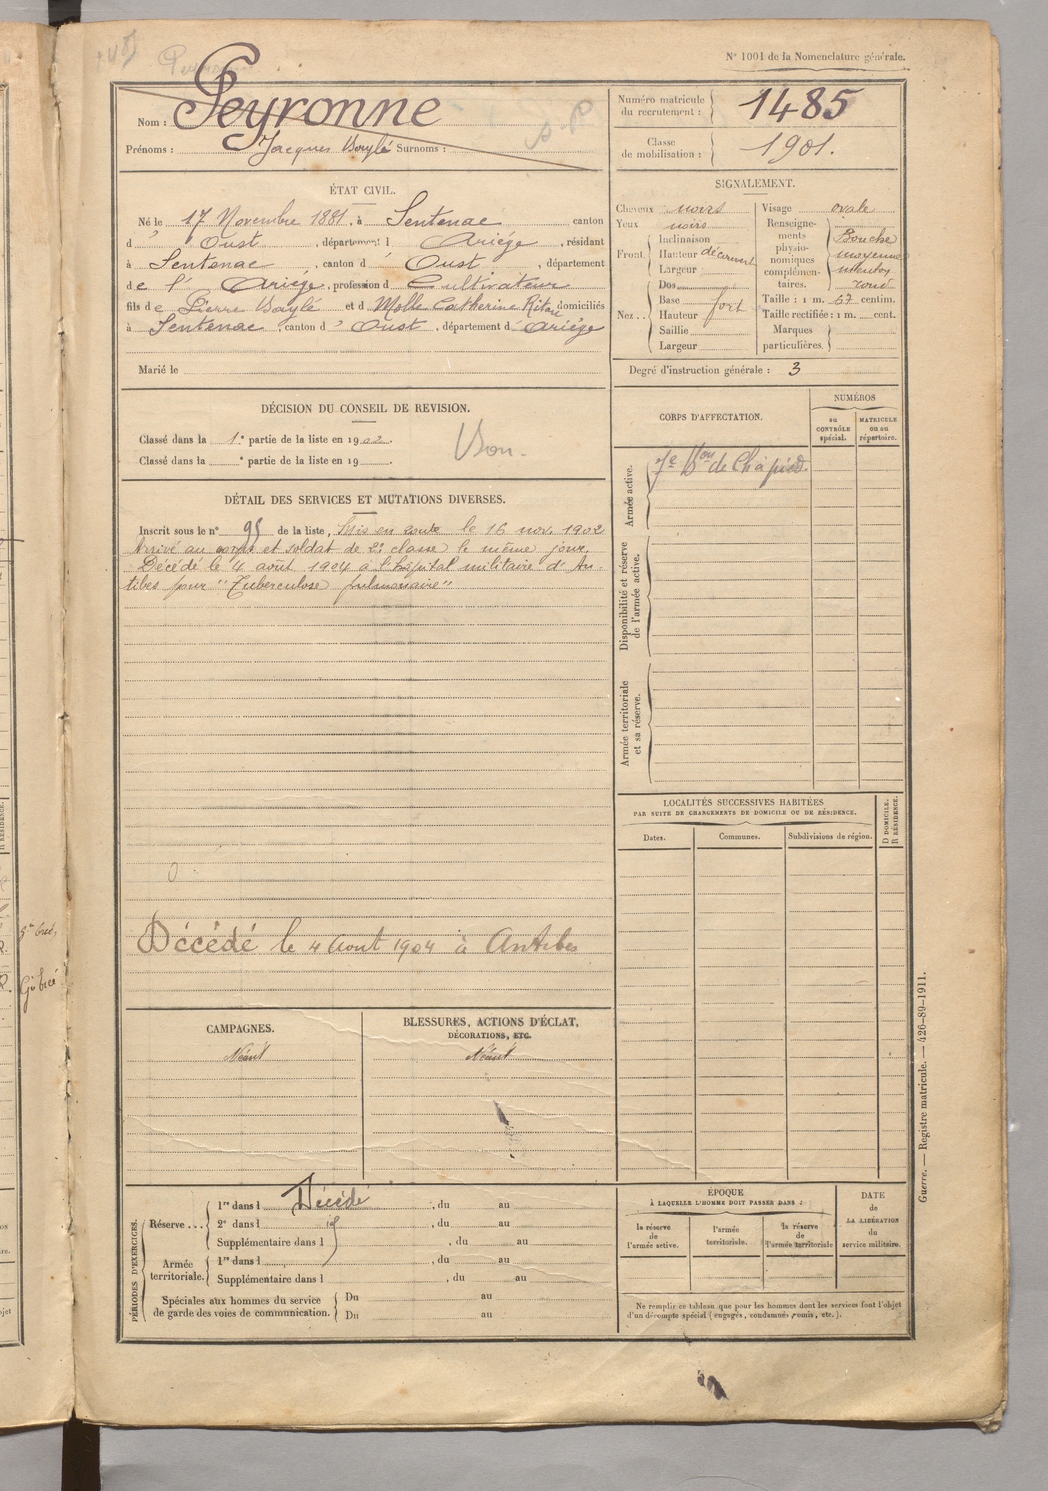 N° 1001 de la Nomenclature générale.
Nom : Peyronne
Prénoms : Jacques Baylé Surnoms :
Numéro matricule du recrutement : 1485
Classe de mobilisation : 1901.
ÉTAT CIVIL.
Né le 17 Novembre 1881, à Sentenac canton
d' Oust, département d l Ariége, résidant
à Sentenac, canton d' Oust, département
de l' Ariége, profession d Cultivateur
fils de Pierre Baylé et d Molle Catherine Ritou domiciliés
à Sentenac canton d' Oust, département d' Ariége
Marié le
SIGNALEMENT.
Cheveux noirs
Yeux noirs
Front.
Inclinaison
Hauteur découvert
Largeur
Nez..
Dos
Base
Hauteur fort
Saillie
Largeur
Visage ovale
Renseignements physionomiques complémentaires.
Bouche
moyenne
menton
rond
Taille : 1 m. 67 centim.
Taille rectifiée : 1 m. cent.
Marques
particulières.
Degré d'instruction générale : 3
DÉCISION DU CONSEIL DE REVISION.
Classé dans la 1e partie de la liste en 1902.
Classé dans la e partie de la liste en 19
Bon.
CORPS D'AFFECTATION.
NUMÉROS
au CONTRÔLE spécial.
MATRICULE ou au répertoire.
Armée active.
7e Bon de Ch à pied.
Disponibilité et réserve de l'armée active.
Armée territoriale et sa réserve.
DÉTAIL DES SERVICES ET MUTATIONS DIVERSES.
Inscrit sous le n° 95 de la liste, Mis en route le 16 nov. 1902
Arrivé au corps et soldat de 2e classe le même jour.
Décédé le 4 août 1904 à l'hôpital militaire d'An-
tibes pour "Tuberculose pulmonaire"
Décédé le 4 Aout 1904 à Antibes
LOCALITÉS SUCCESSIVES HABITÉES
PAR SUITE DE CHANGEMENTS DE DOMICILE OU DE RÉSIDENCE.
Dates.
Communes.
Subdivisions de région.
D DOMICILE.
R RÉSIDENCE.
CAMPAGNES.
Néant
BLESSURES, ACTIONS D'ÉCLAT,
DÉCORATIONS, ETC.
Néant
PÉRIODES D'EXERCICES.
Réserve ...
1re dans l Décédé, du au
2e dans l, du au
Supplémentaire dans l, du au
Armée territoriale.
1re dans l, du au
Supplémentaire dans l, du au
Spéciales aux hommes du service
de garde des voies de communication.
Du au
Du au
ÉPOQUE
À LAQUELLE L'HOMME DOIT PASSER DANS :
la réserve de l'armée active.
l'armée territoriale.
la réserve de l'armée territoriale
DATE
de
LA LIBÉRATION
du
service militaire.
Ne remplir ce tableau que pour les hommes dont les services font l'objet
d'un décompte spécial (engagés, condamnés, omis, etc.).
Guerre. — Registre matricule. — 426-89-1911.